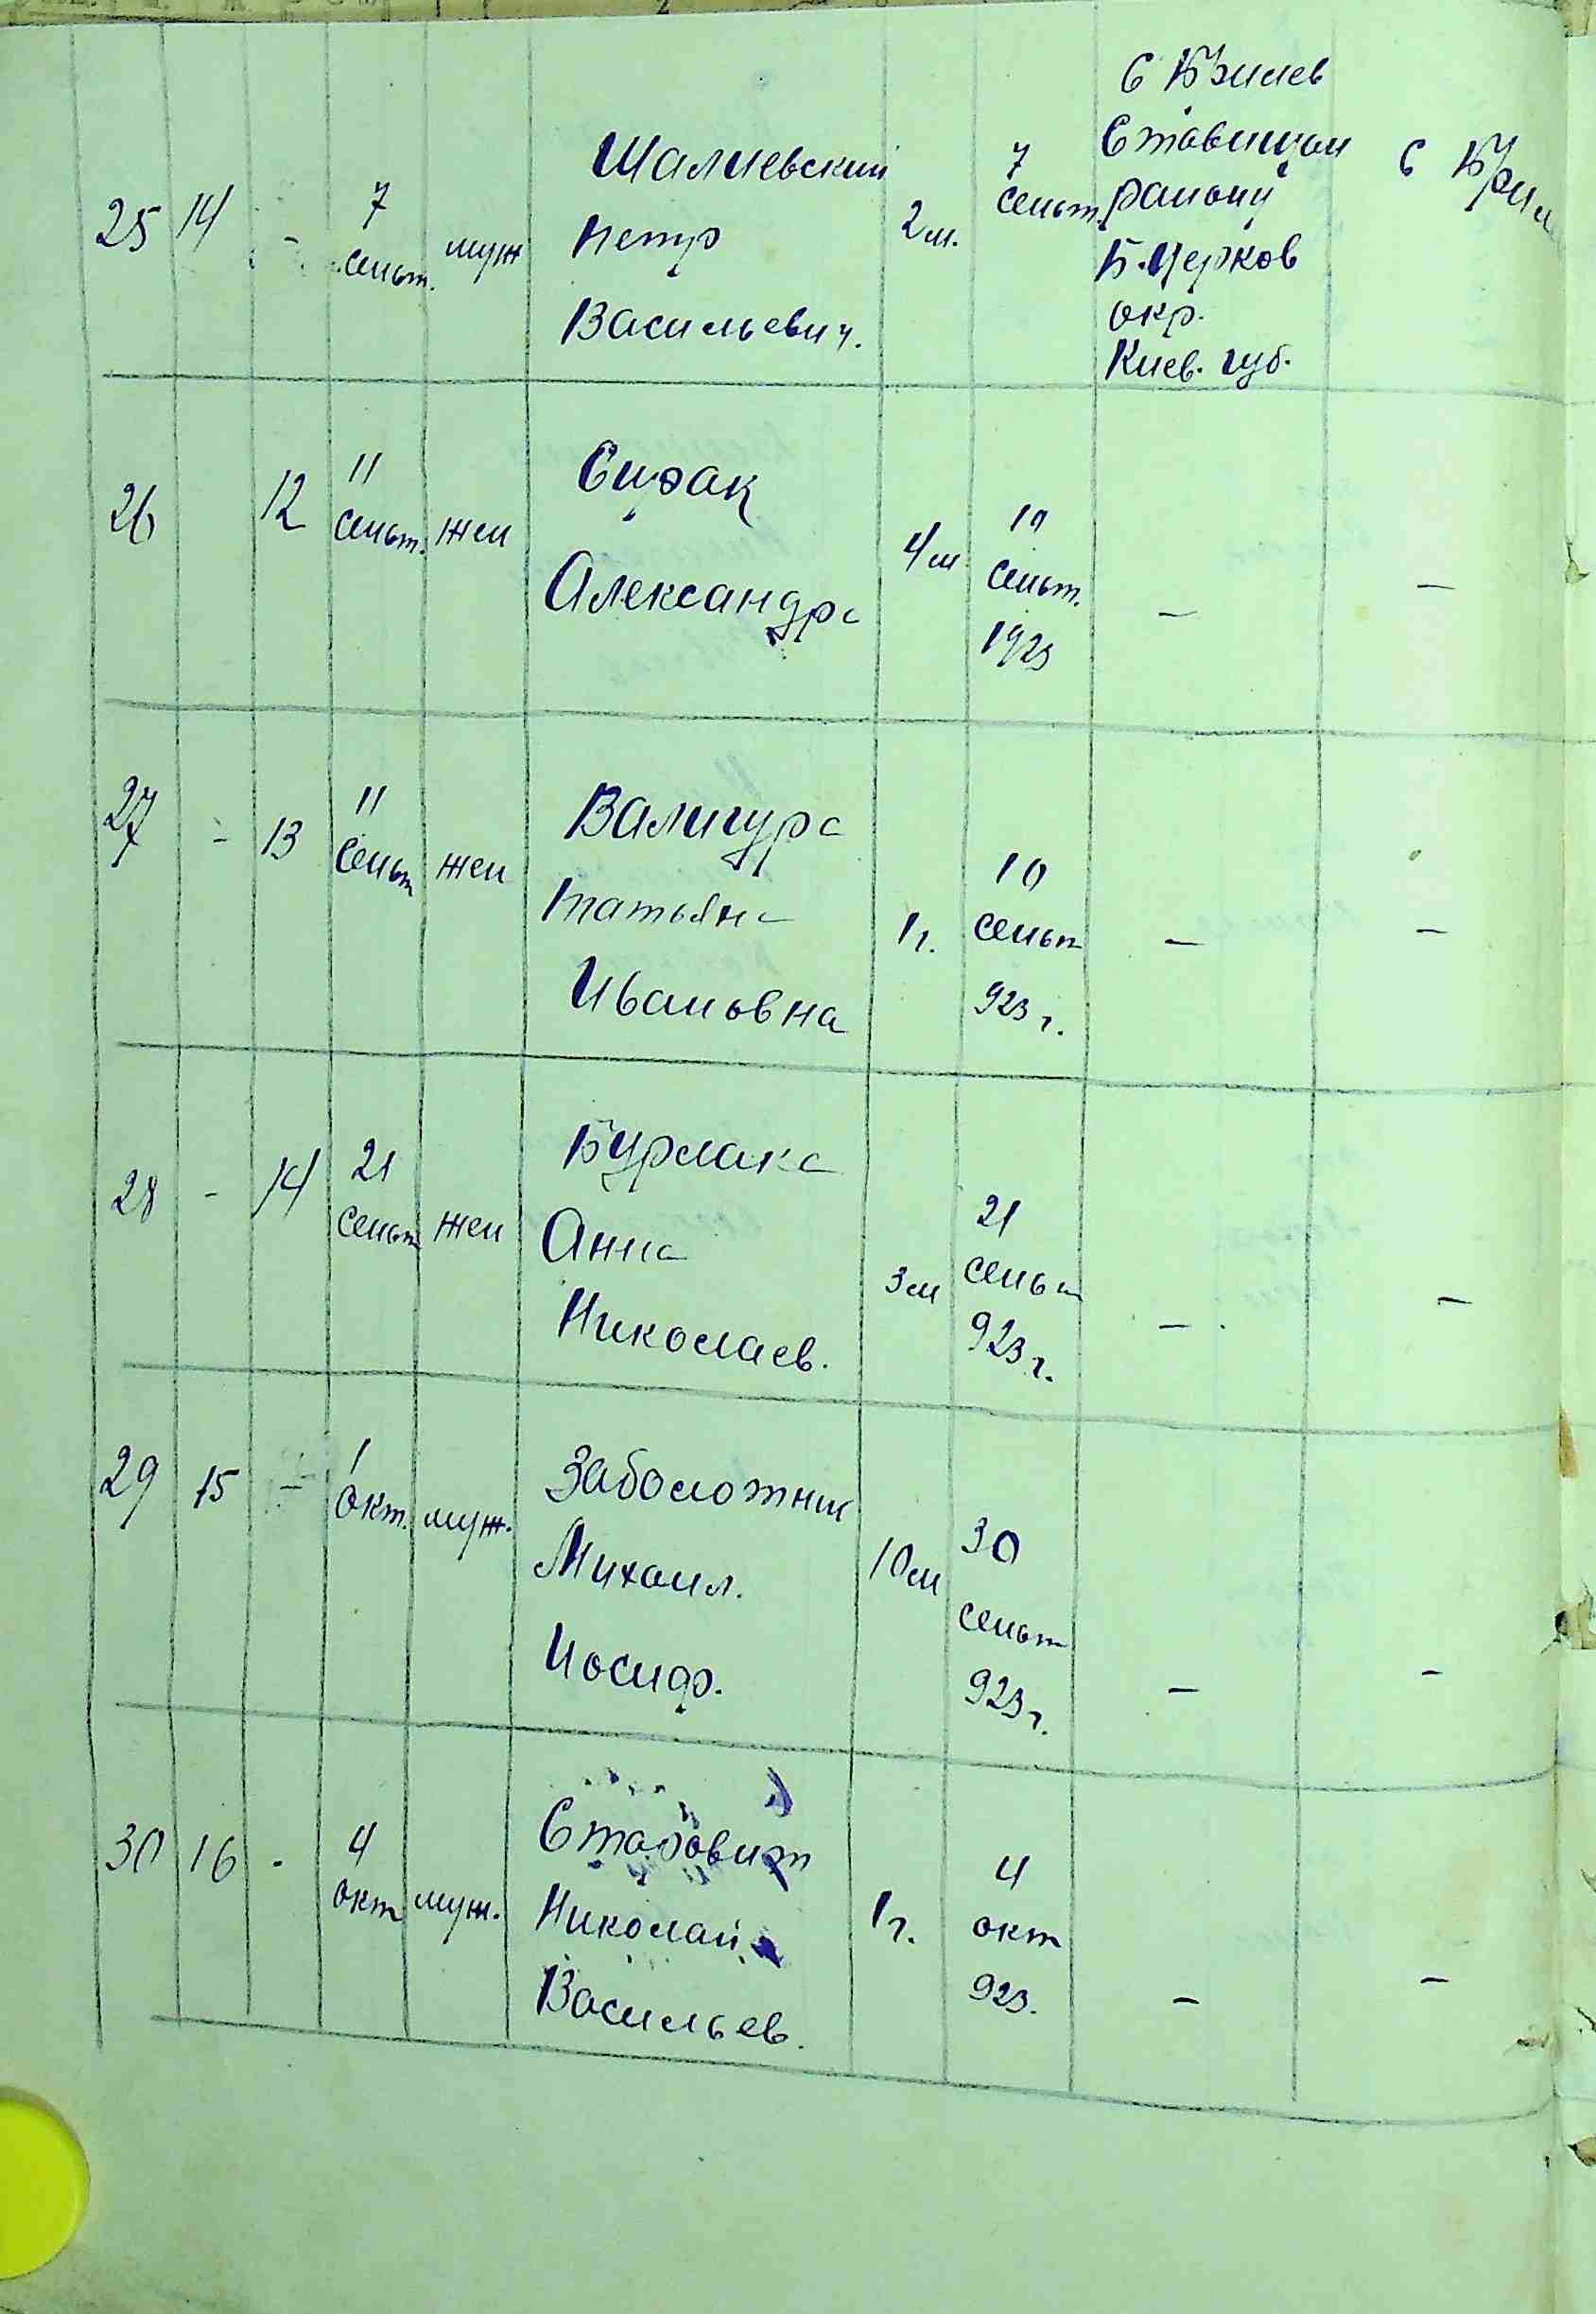 25 14 - 7 сеньт. муж
Шалиевский
Петр
Васильевич.
2 м.
7
сеньт.
С
Ставищан
району
Б.Церков
окр.
Киев. губ.
с
26 12 11 сеньт. жен
Александра
4 м
10
сеньт.
1923
-
-
27 - 13 11 сеньт жен
Валигура
Татьяна
Ивановна
1 г.
10
сеньт
923 г.
-
-
28 - 14 21 сеньт жен
Бурлака
Анна
Николаев.
3 м
21
сеньт
923 г.
-
-
29 15 - 1 окт. муж.
Заболотний
Михаил.
Иосиф.
10 м
30
сеньт
923 г.
-
-
30 16 - 4 окт муж.
Николай
Васильев.
1 г.
4
окт
923.
-
-